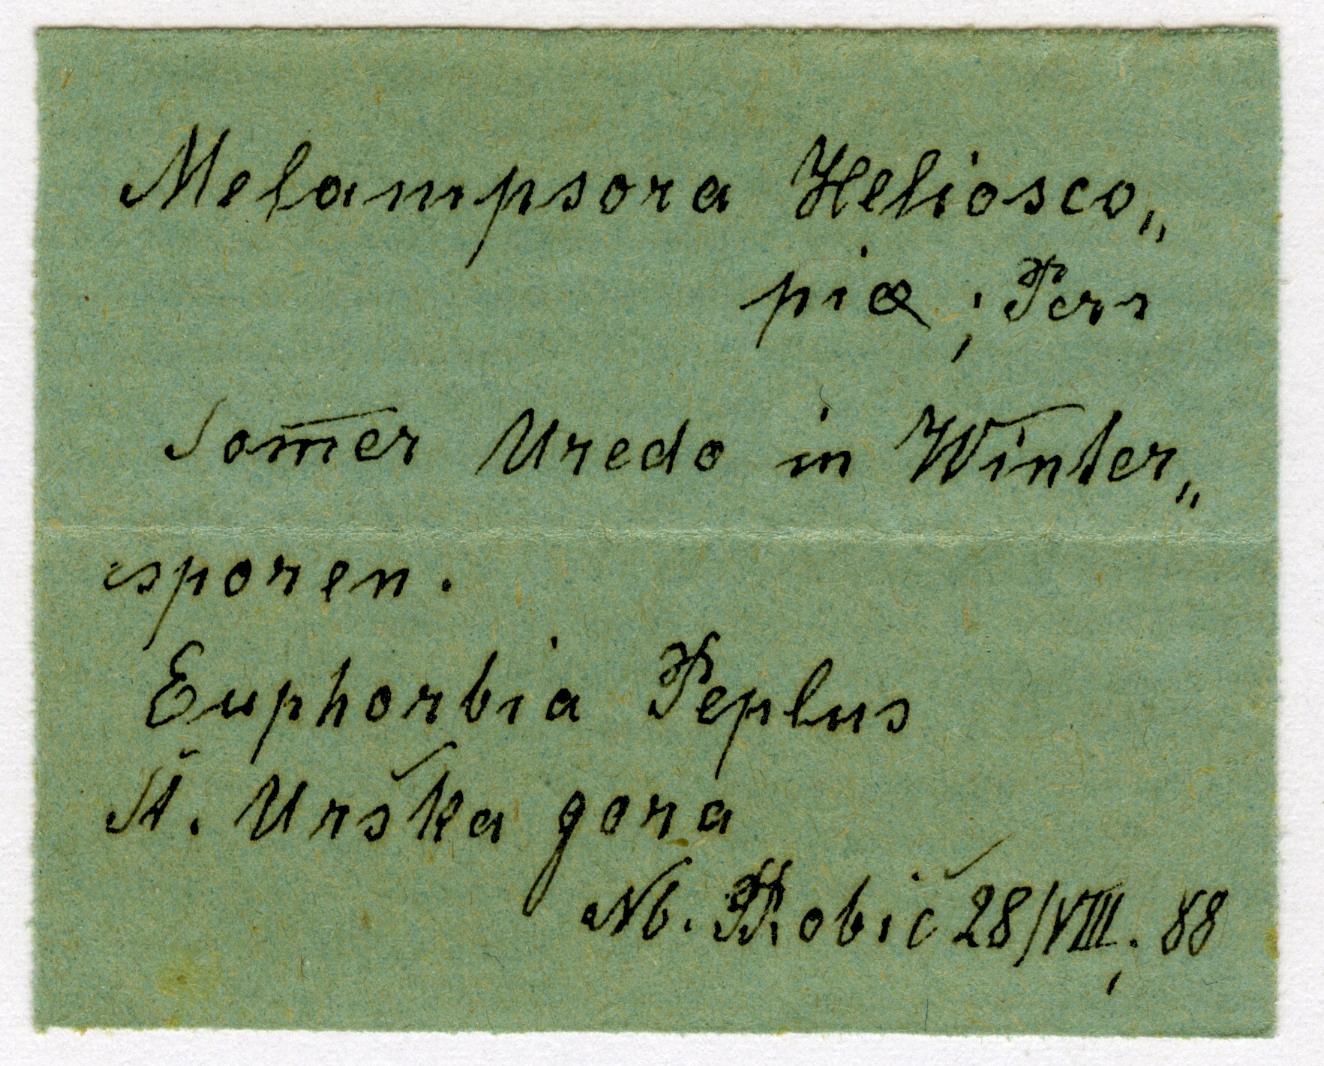 Melampsora Heliosco„
piæ; Pers
Som̄er Uredo in Winter„
sporen.
Euphorbia Peplus
Št. Urška gora
Robič 28/VIII. 88